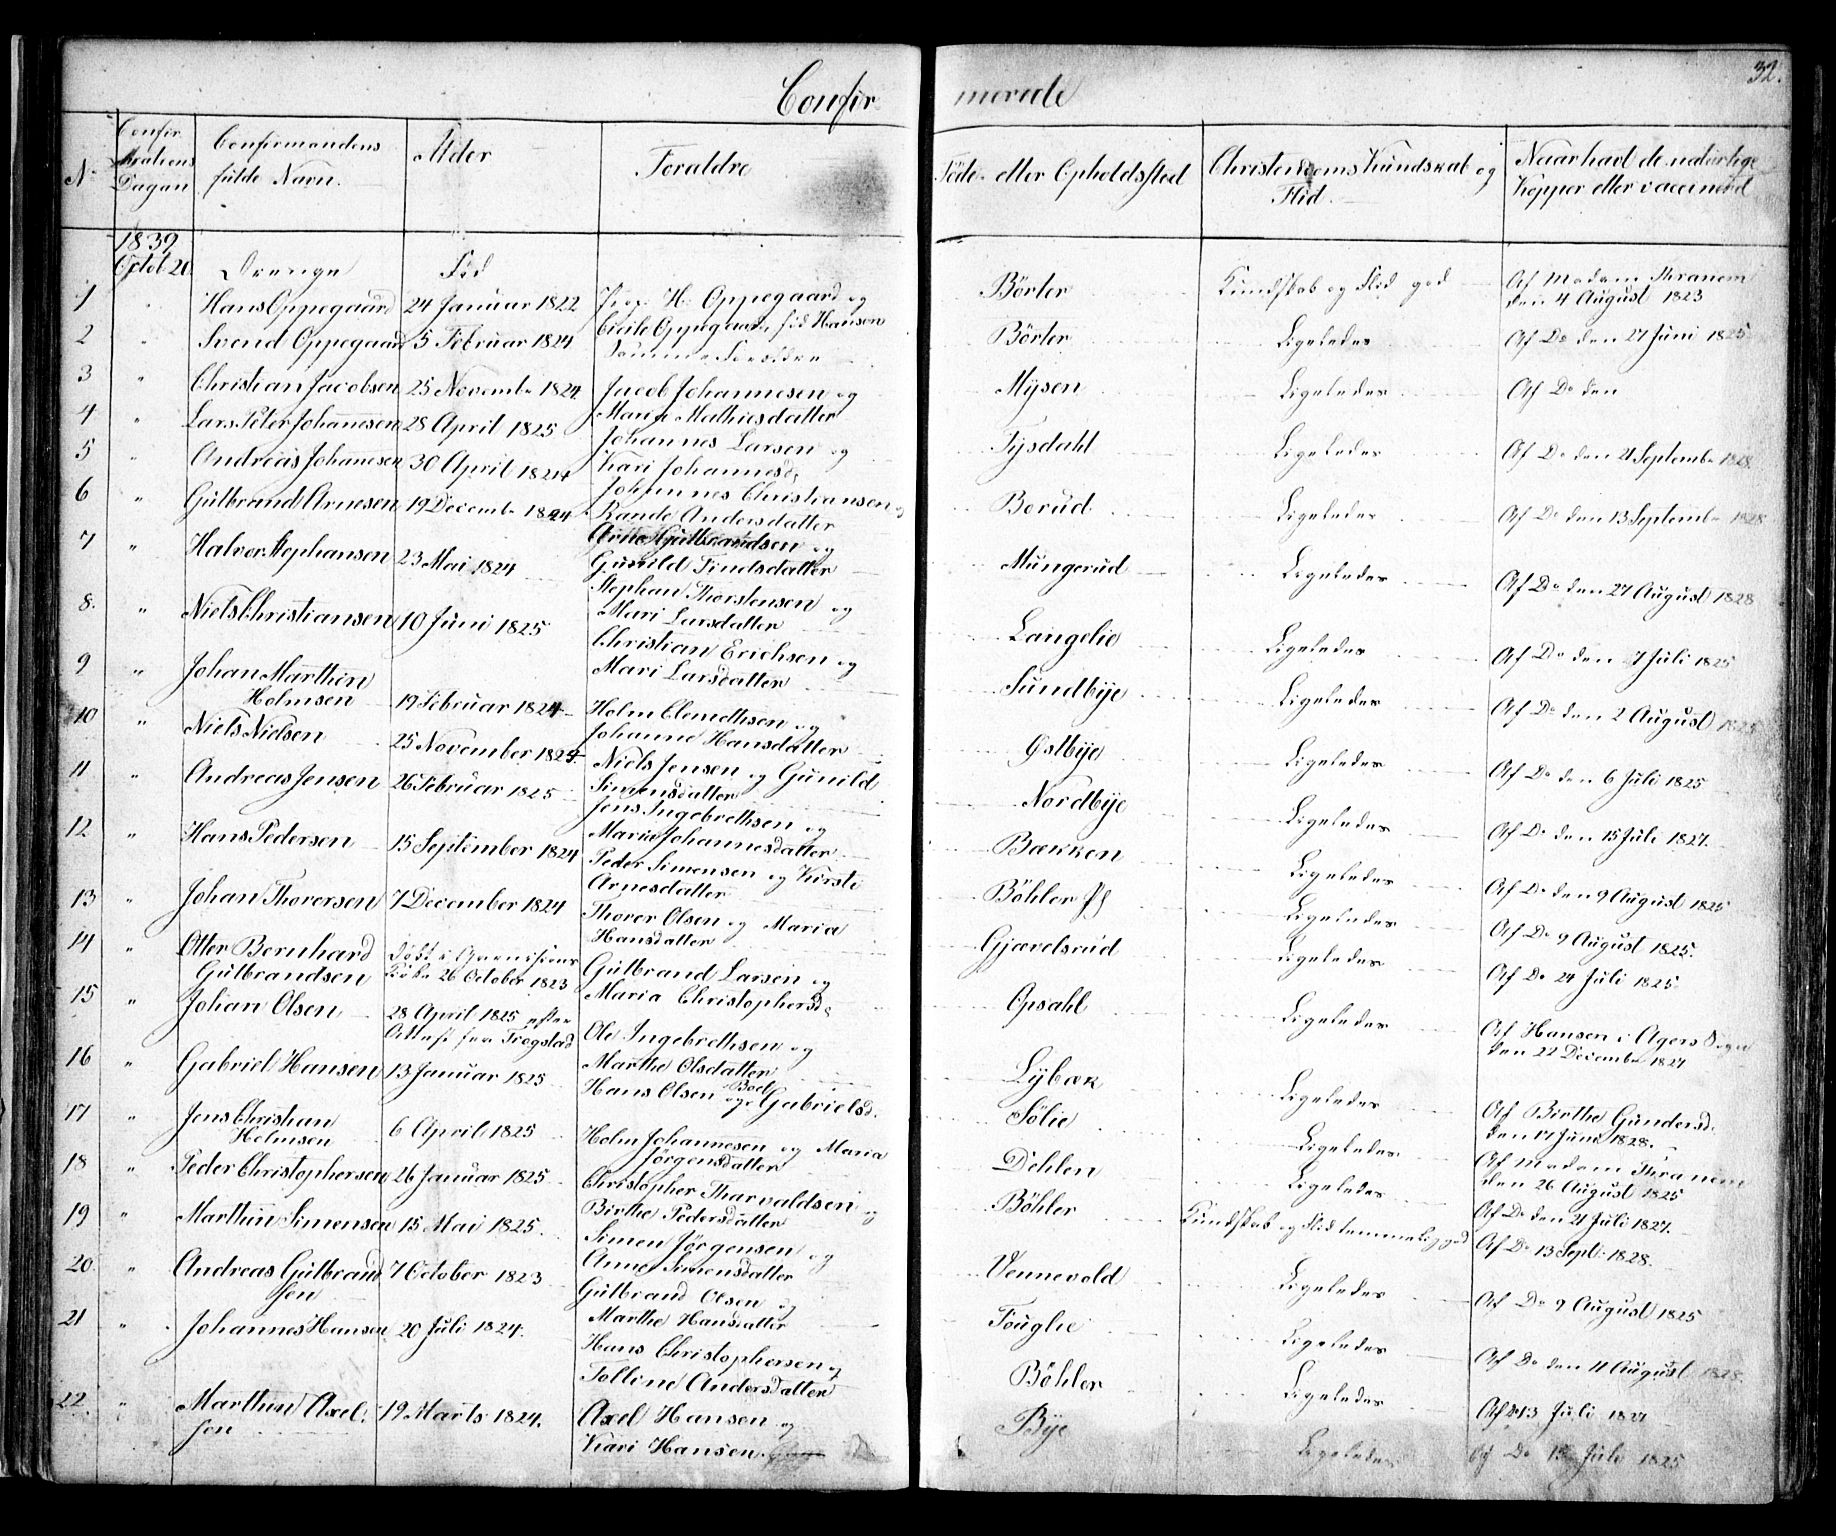 32.
Confir merede
No
Confir
mationens
Dagen
Confirmandens
fulde Navn.
Alder
Foraldre
Føde- eller Opholdssted
Christendoms Kundskab og
Flid.
Naar havd de naturlige
Kopper eller vaccinered
1839
Octob 20
Drenge
Fød
1 " Hans Oppegaard 24 Januar 1822 H. Oppegaard og Börter Kundskab og Flid god Af Madam Thranem
Cicile Oppegaard fød Hansen den 4 August 1823
2 " Svend Oppegaard 5 Februar 1824 Samme Forældre Börter Ligeledes Af Do den 27 Juni 1825
3 " Christian Jacobsen 25 Novembr 1824 Jacob Johannesen og Mysen Ligeledes Af Do den
Maria Mathiesdatter
4 " Lars Peter Johannesen 28 April 1825 Johannes Larsen og Tysdahl Ligeledes Af Do den 21 Septembr 1828.
Kari Johannesd:
5 " Andreas Johanesen 30 April 1824 Johannes Christiansen og Borud Ligeledes Af Do den 13 Septembr 1828
Rande Andersdatter
6 " Gulbrand Arnesen 19 Decembr 1824 Arne Gulbrandsen og Mungerud Ligeledes Af Do den 27 August 1828
Gunild Findsdatter
7 " Halvor Stephansen 23 Mai 1824 Stephan Thorstensen og Langelie Ligeledes Af Do den 7 Juli 1825
Mari Larsdatter
8. " Niels Christiansen 10 Juni 1825 Christian Erichsen og Sundbye Ligeledes Af Do den 2 August 1825
Mari Larsdatter
9 " Johan Marthin
Holmsen 19 Februar 1824 Holm Clemethsen og Østbye Ligeledes Af Do den 6 Juli 1825
Johanne Hansdatter
10 " Niels Nielsen 25 November 1825. Niels Jensen og Gunild Nordbye Ligeledes Af Do den 15 Juli 1827.
Simensdatter
11 " Andreas Jensen 26 Februar 1825 Jens Ingebrethsen og Bækken Ligeledes Af Do den 9 August 1825
Maria Johannesdatter
12 " Hans Pedersen 15 September 1824 Peder Simensen og Kirsti Böhler Ligeledes Af Do 9 August 1825.
Arnesdatter
13 " Johan Thorersen 7 December 1824 Thorer Olsen og Maria Gjævelsrud Ligeledes Af Do 24 Juli 1825
Hansdatter
14 " Otter Bernhard døbt i Garnisons
Gulbrandsen Kirke 26 October 1823 Gulbrand Larsen og Opsahl Ligeledes Af Hansen i Agers Sogn
Maria Christophersd: den 22 Decembr 1824
15 " Johan Olsen 28 April 1825 efter
Attest fra Trøgstad Ole Ingebrethsen og Lybæk Ligeledes Af Birthe Gundersd:
Marthe Olsdatter den 17 Juni 1828.
16 " Gabriel Hansen 13 Januar 1825 Hans Olsen og Boel Gabrielsd. Sølie Ligeledes Af Madam Thranem
den 26 August 1825
17 " Jens Christian
Holmsen 6 April 1825 Holm Johannesen og Maria Dehlen Ligeledes Af Do den 21 Juli 1827.
Jörgensdatter
18 " Peder Christophersen 26 Januar 1825 Christopher Tharvaldsen og Böhler Kundskab og Flid temmelig god Af Do 13 Sept: 1828.
Birthe Pedersdatter
19 " Marthin Simensen 15 Mai 1825. Simen Jörgensen og Vennevold Ligeledes Af Do 9 August 1825
Anne Simensdatter
20 " Andreas Gulbrand
sen 7 October 1823 Gulbrand Olsen og Fouglie Ligeledes Af Do den 11 August 1828.
Marthe Hansdatter
21 " Johannes Hansen 20 Juli 1824. Hans Christophersen og Böhler Ligeledes Af Do 13 Juli 1827
Tolline Andersdatter
22. " Marthin Axel-
sen 19 Marts 1824. Axel Hansen og Bye Ligeledes Af Do 13 Juli 1825
Kari Hansen